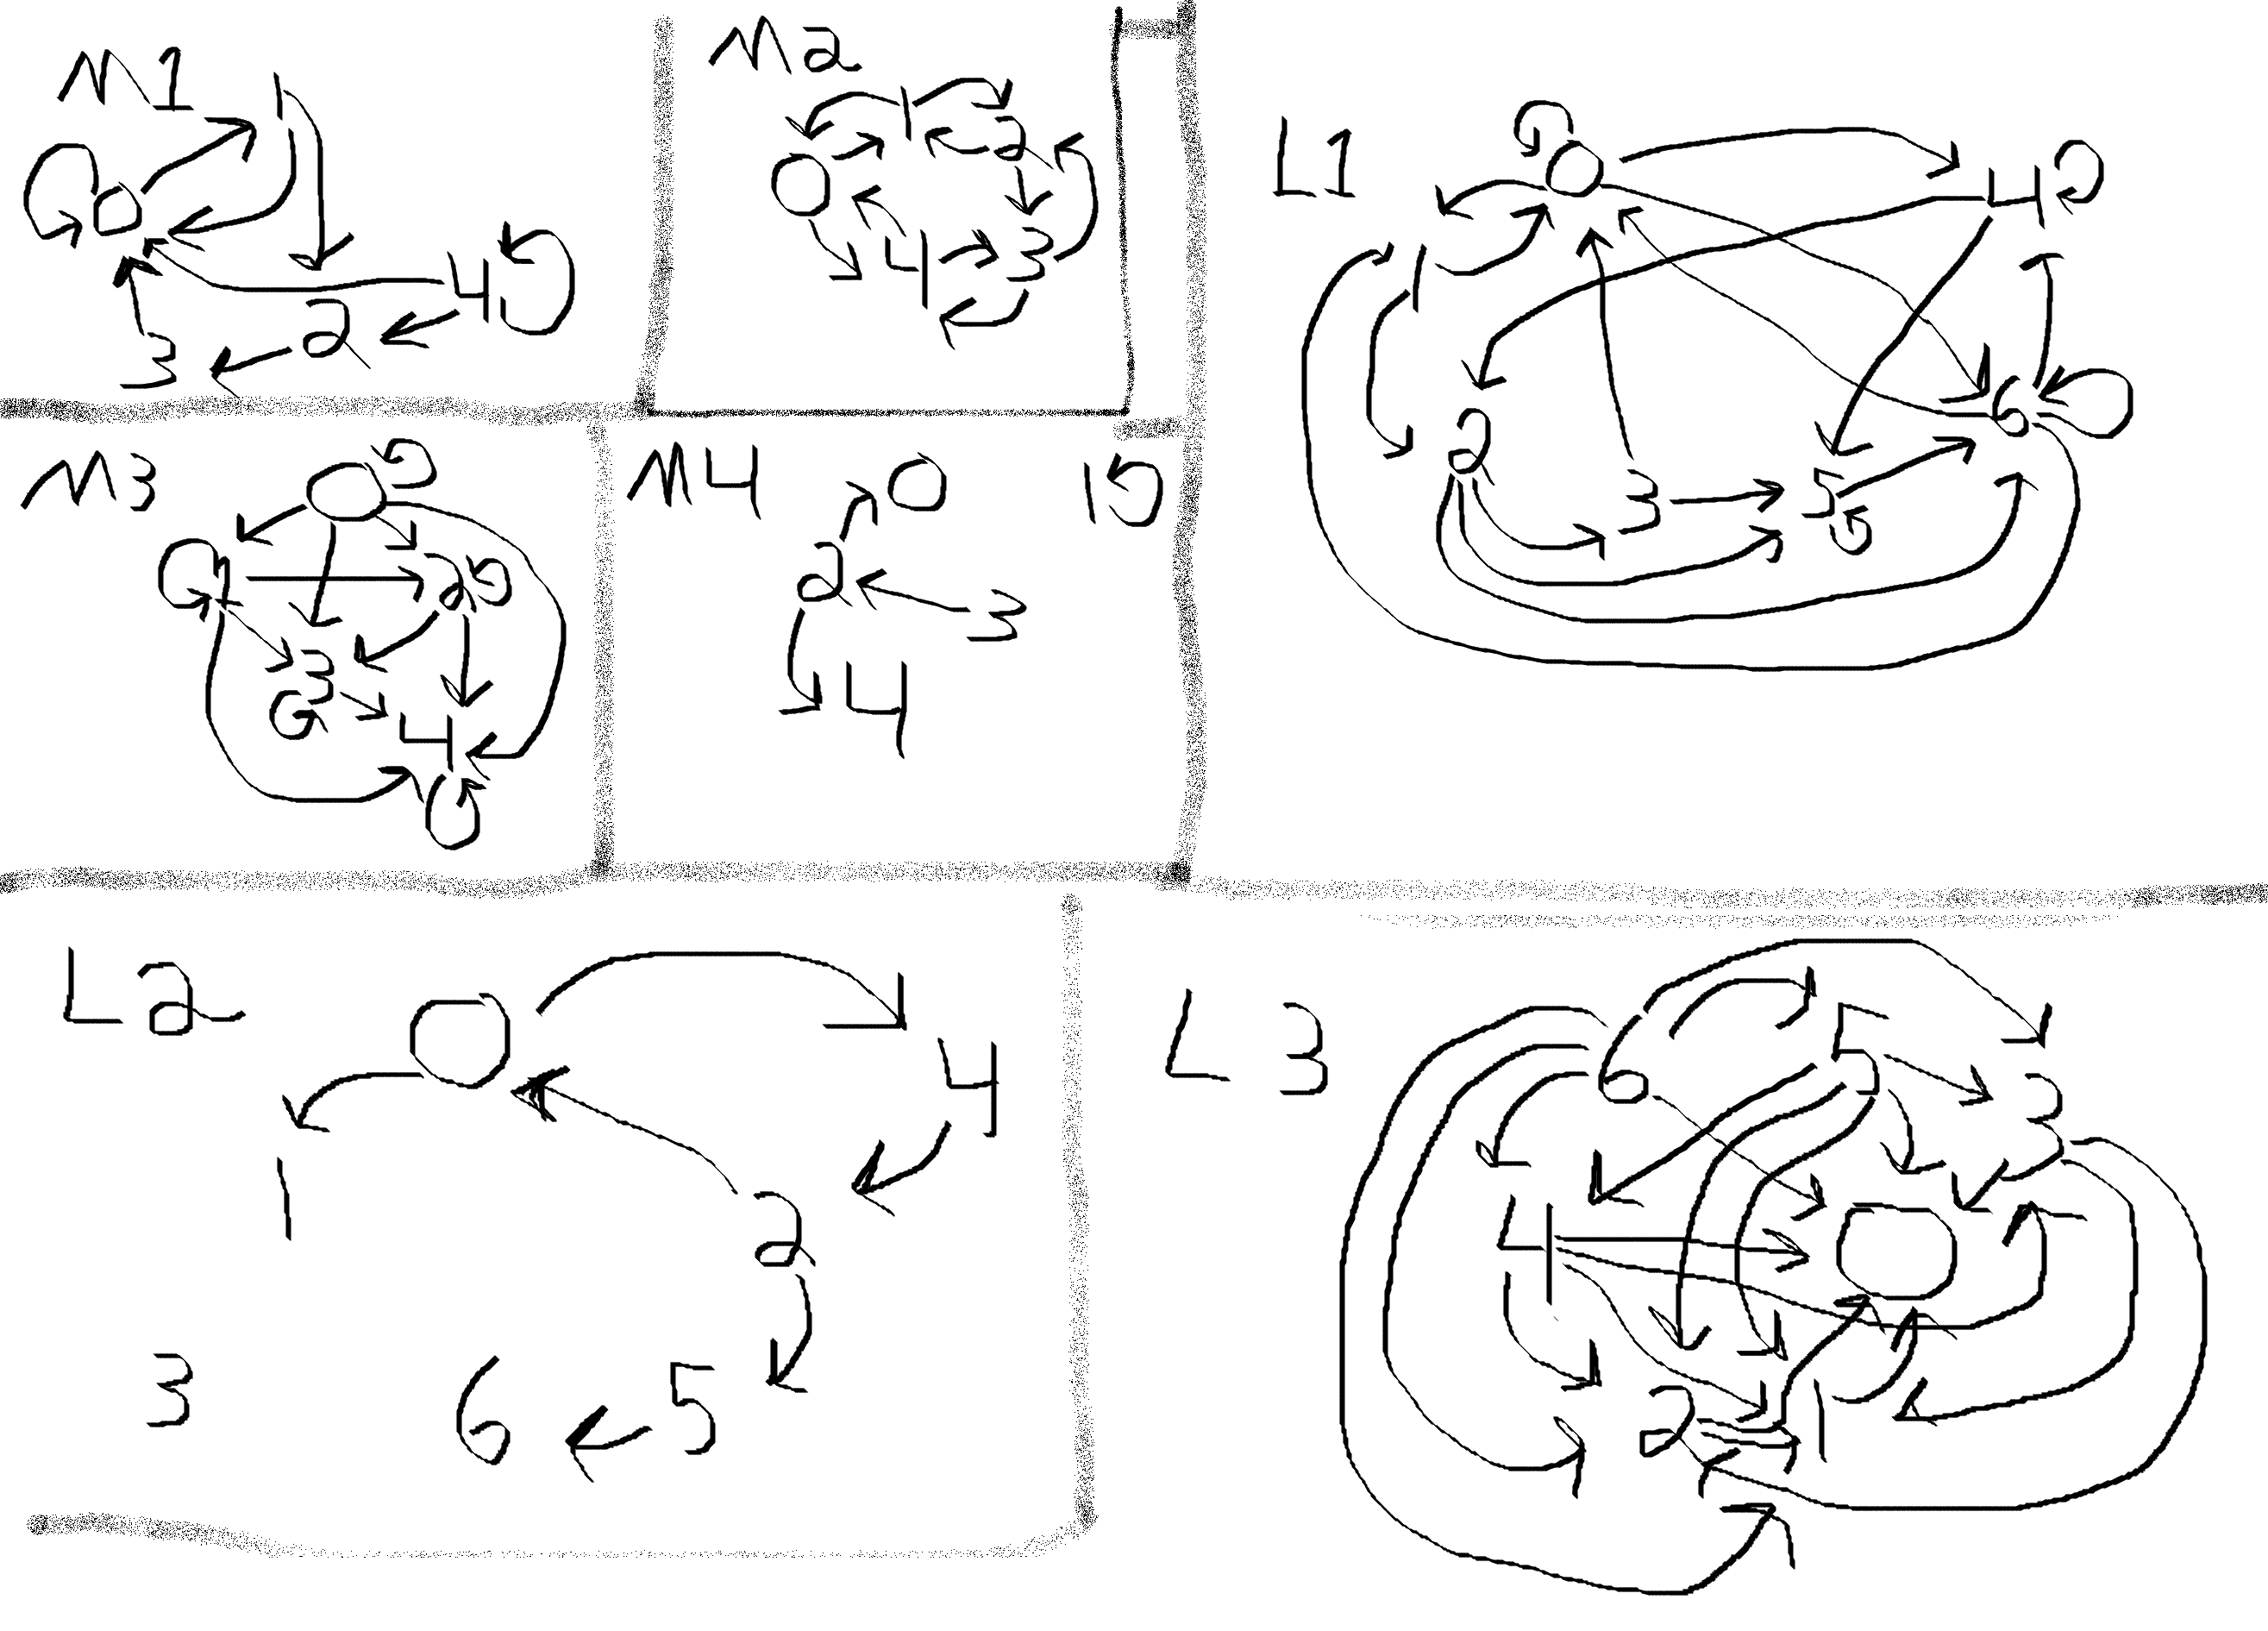 M1
1
0
4
2
3
M2
1
2
0
4
3
L1
0
4
1
6
2
3
5
M3
0
1
2
3
4
M4
0
1
2
3
4
L2
0
4
1
2
3
6
5
L3
5
6
3
4
0
2
1